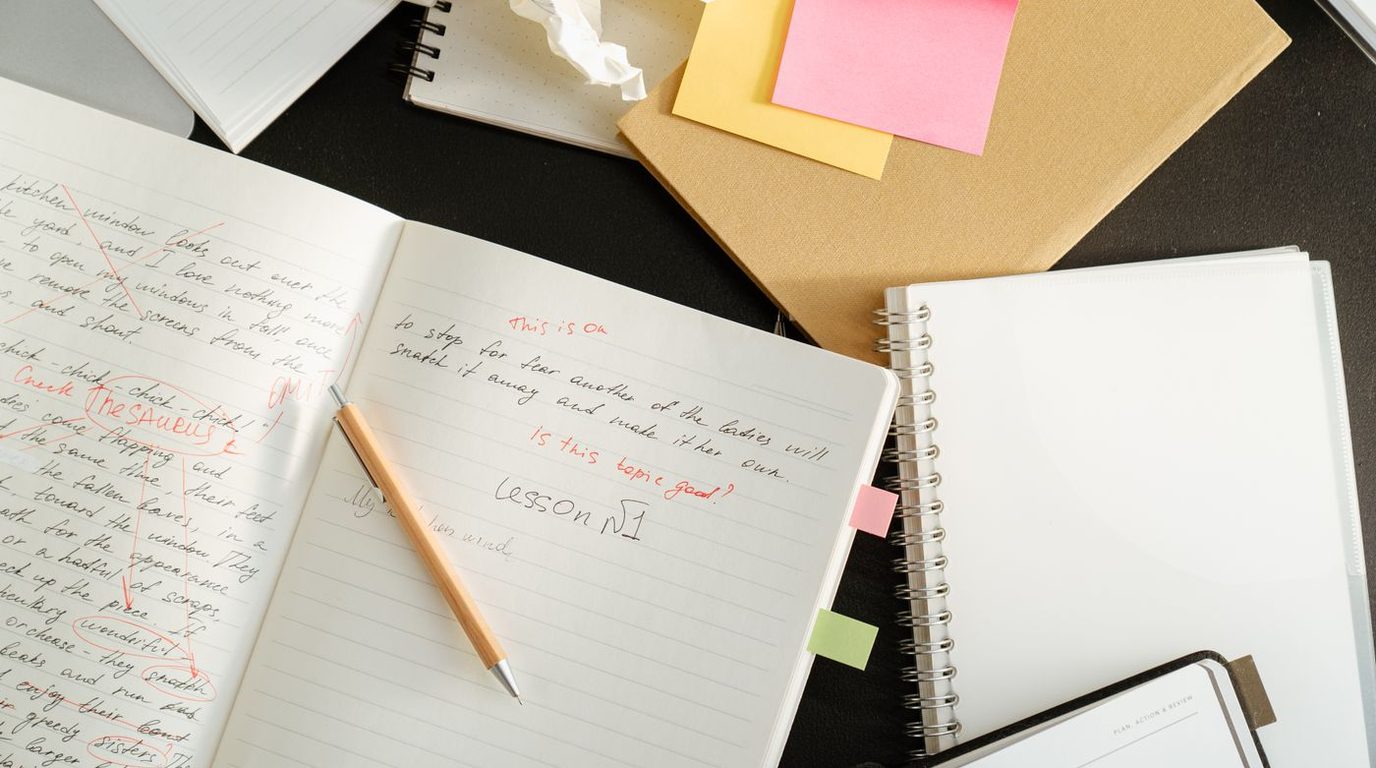 kitchen window looks out over the
yard, and I love nothing more
to open my windows in fall, and
remove the screens from the
and shout.
chick-chick-chick-chick!"
Check Thesaurus
OMIT
come flapping and
the same time, their feet
the fallen leaves, in a
toward the window They
for the appearance
or a handful of scraps,
up the piece. If
wonderful
or cheese - they snatch
beaks and run
enjoy their
greedy sisters?
larger
This is Ok
to stop for fear another of the ladies will
snatch it away and make it her own.
is this topic good?
Lesson №1
My
wind
PLAN, ACTION & REVIEW